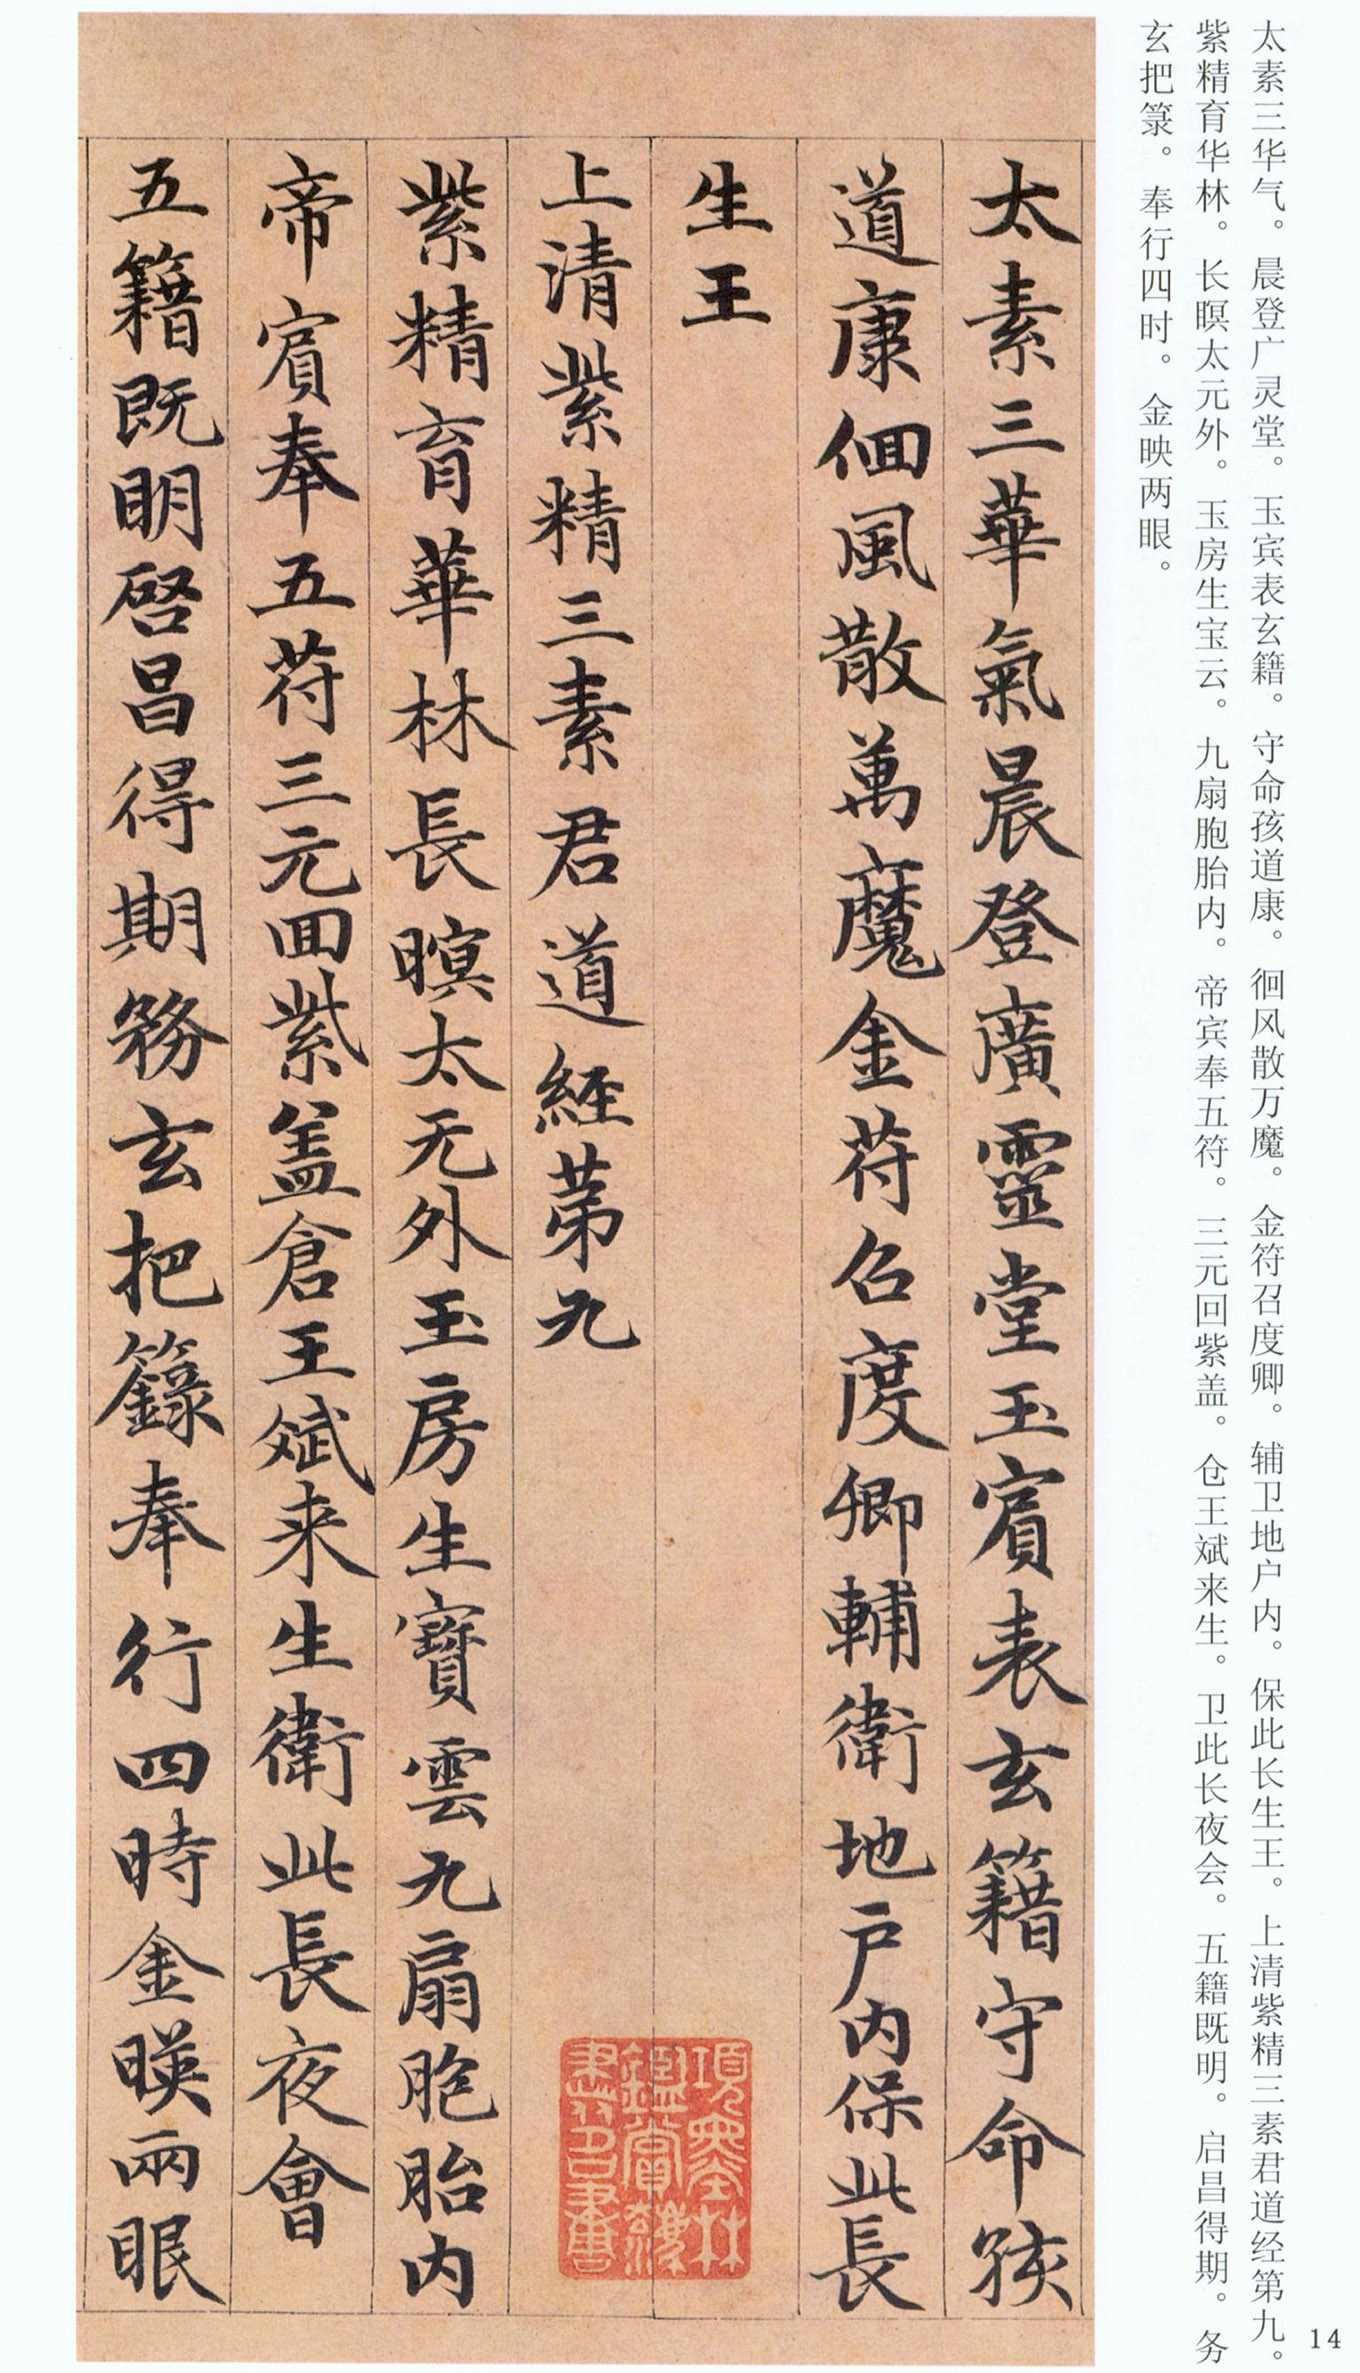 太素三华气。晨登广灵堂。玉宾表玄籍。守命孩道康。徊风散万魔。金符召度卿。辅卫地户内。保此长生王。上清紫精三素君道经第九。
紫精育华林。长瞑太元外。玉房生宝云。九扇胞胎内。帝宾奉五符。三元回紫盖。仓王斌来生。卫此长夜会。五籍既明。启昌得期。务
玄把箓。奉行四时。金映两眼。
太素三華氣晨登廣靈堂玉賓表玄籍守命孩
道康佪風散萬魔金苻召度卿輔衛地戶內保此長
生王
上清紫精三素君道經苐九
紫精育華林長瞑太无外玉房生寶雲九扇胞胎內
帝賓奉五苻三元回紫盖倉王斌来生衛此長夜會
五籍既明啓昌得期務玄把籙奉行四時金暎兩眼
項墨林
鑑賞
14